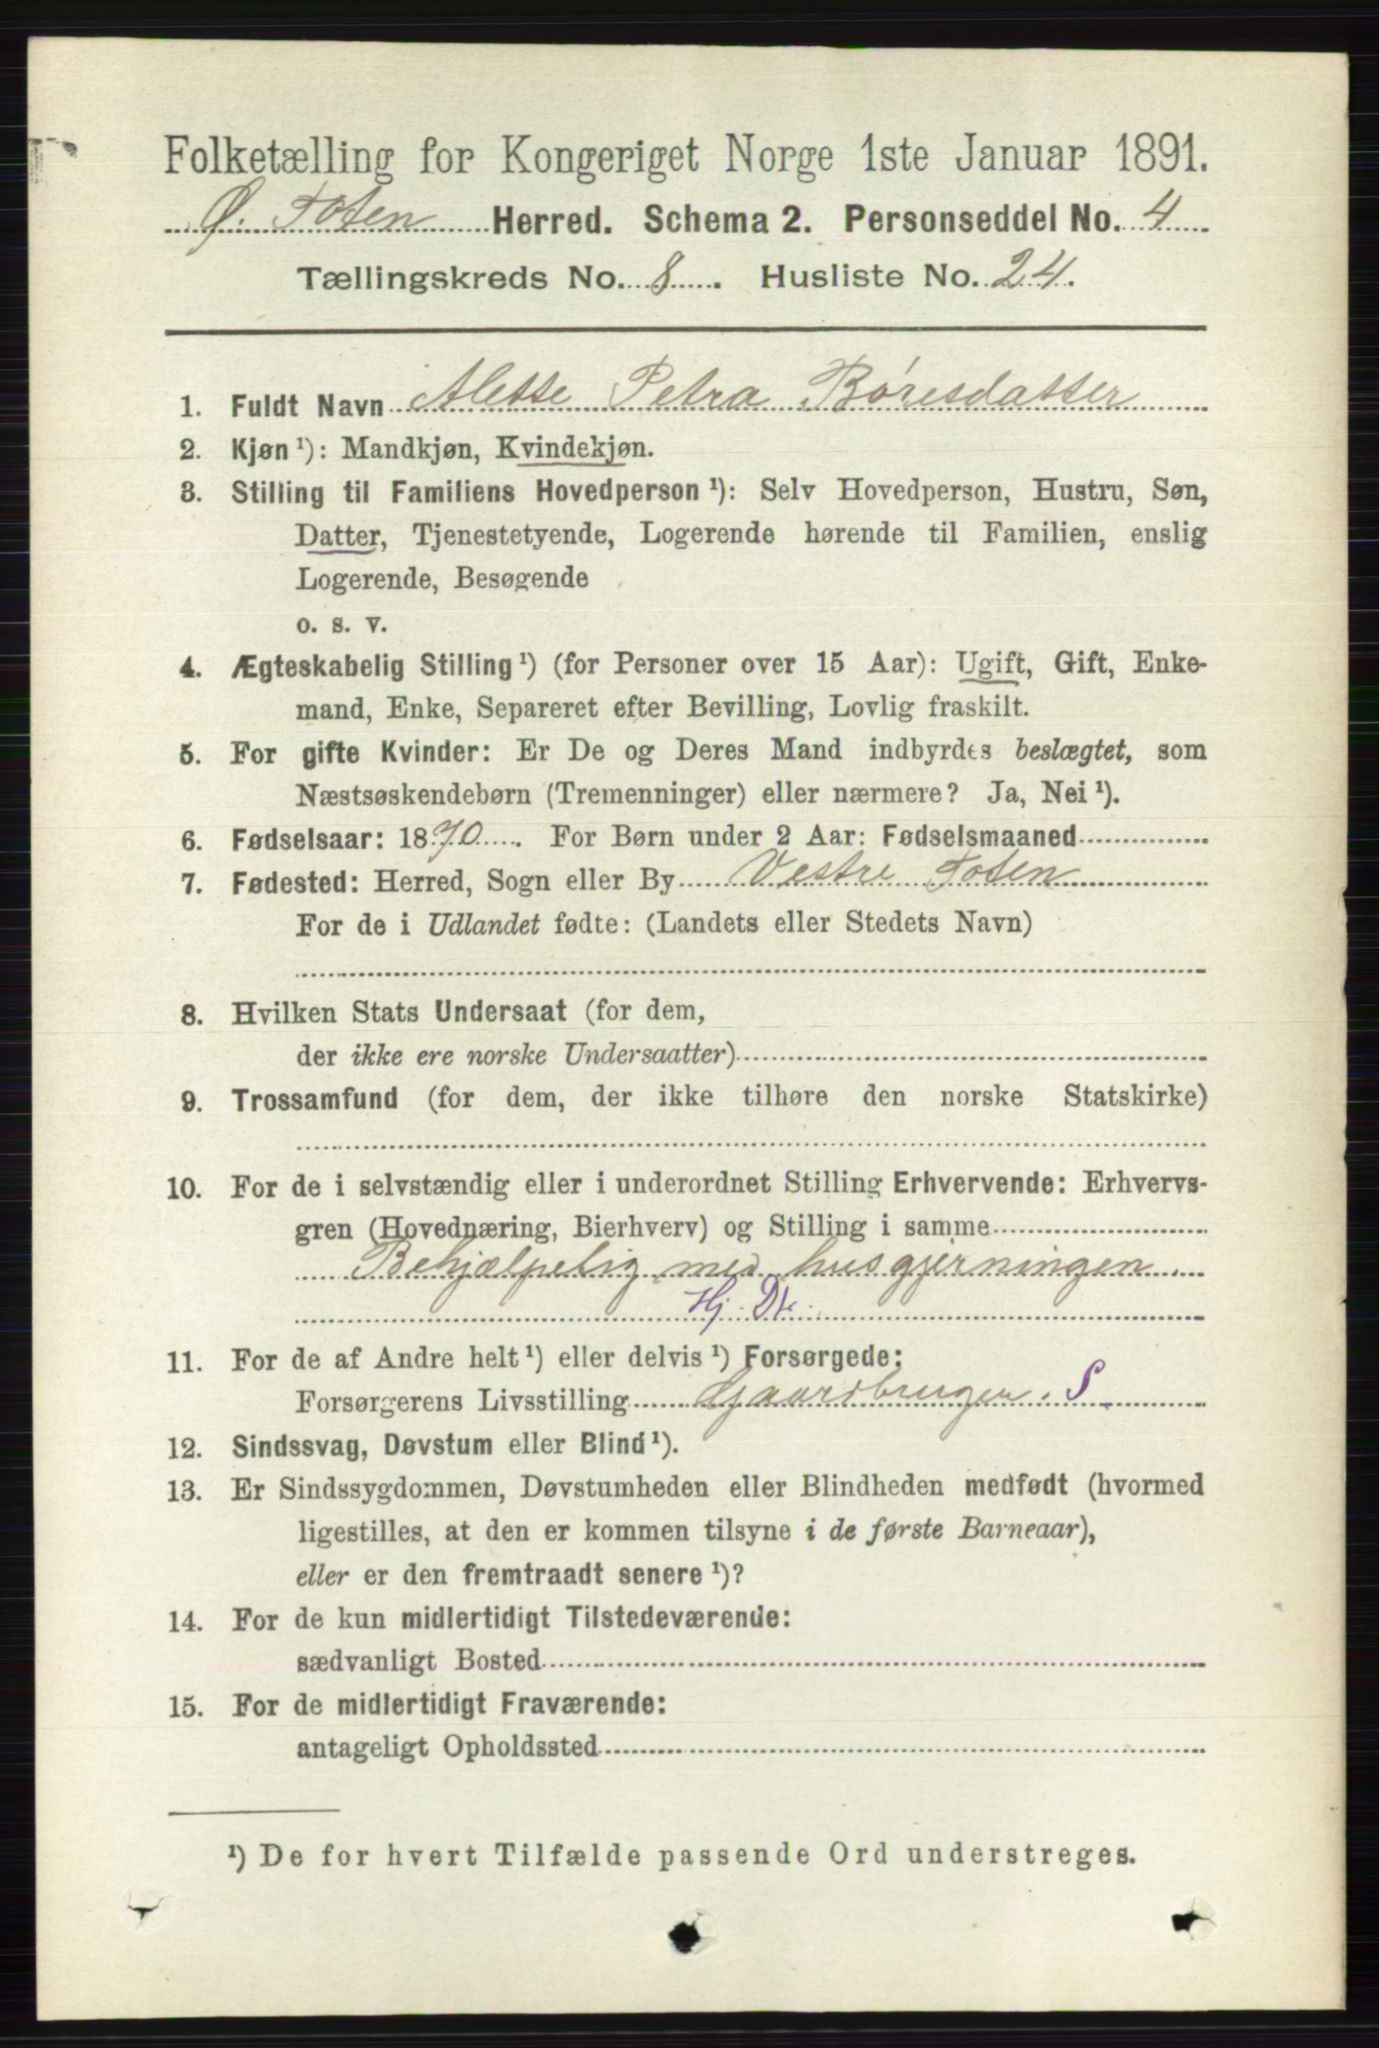 Folketælling for Kongeriget Norge 1ste Januar 1891.
Ø. Toten Herred. Schema 2. Personseddel No. 4
Tællingskreds No. 8. Husliste No. 24.
1. Fuldt Navn Alette Petra Børesdatter
2. Kjøn ¹): Mandkjøn, Kvindekjøn.
3. Stilling til Familiens Hovedperson ¹): Selv Hovedperson, Hustru, Søn,
Datter, Tjenestetyende, Logerende hørende til Familien, enslig
Logerende, Besøgende
o. s. v.
4. Ægteskabelig Stilling ¹) (for Personer over 15 Aar): Ugift, Gift, Enke-
mand, Enke, Separeret efter Bevilling, Lovlig fraskilt.
5. For gifte Kvinder: Er De og Deres Mand indbyrdes beslægtet, som
Næstsøskendebørn (Tremenninger) eller nærmere? Ja, Nei ¹).
6. Fødselsaar: 1870. For Børn under 2 Aar: Fødselsmaaned
7. Fødested: Herred, Sogn eller By Vestre Toten
For de i Udlandet fødte: (Landets eller Stedets Navn)
8. Hvilken Stats Undersaat (for dem,
der ikke ere norske Undersaatter)
9. Trossamfund (for dem, der ikke tilhøre den norske Statskirke)
10. For de i selvstændig eller i underordnet Stilling Erhvervende: Erhvervs-
gren (Hovednæring, Bierhverv) og Stilling i samme
Behjælpelig med husgjerningen.
Hj. Dtr.
11. For de af Andre helt ¹) eller delvis ¹) Forsørgede:
Forsørgerens Livsstilling Gaardbruger. S
12. Sindssvag, Døvstum eller Blind ¹).
13. Er Sindssygdommen, Døvstumheden eller Blindheden medfødt (hvormed
ligestilles, at den er kommen tilsyne i de første Barneaar),
eller er den fremtraadt senere ¹)?
14. For de kun midlertidigt Tilstedeværende:
sædvanligt Bosted
15. For de midlertidigt Fraværende:
antageligt Opholdssted
¹) De for hvert Tilfælde passende Ord understreges.